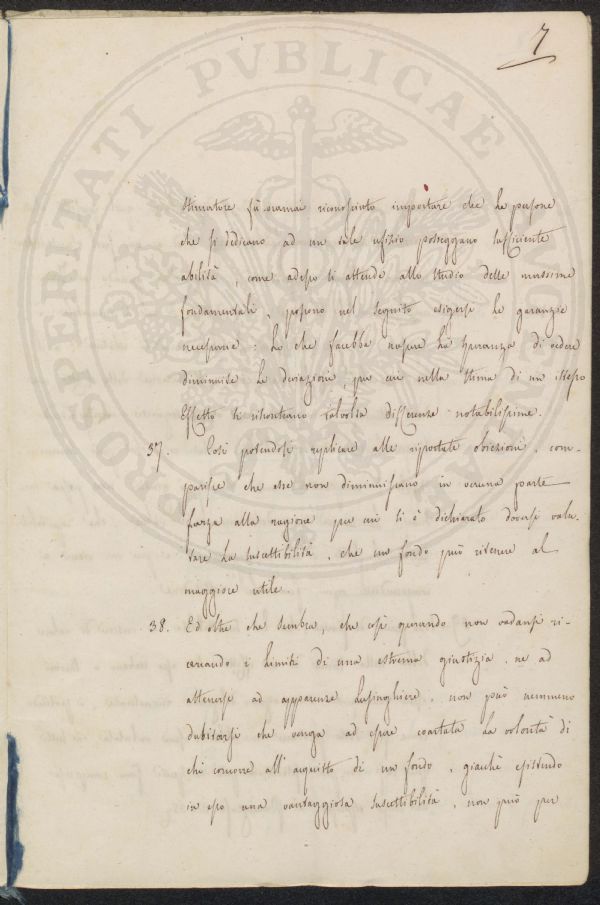 7
stimatore fù oramai riconosciuto importare che le persone
che si dedicano ad un tale ufizio posseggano sufficiente
abilità, come adesso si attende allo studio delle massime
fondamentali, possono nel seguito esigersi le garanzie
necessarie: Lo che farebbe nascere la speranza di vedere
diminuite le deviazioni, per cui nella stima di un istesso
Effetto si riscontrano talvolta differenze notabilissime.
37. Così potendosi replicare alle riportate obiezioni, com-
parisce che esse non diminuiscano in veruna parte
forza alla ragione per cui si è dichiarato doversi valu-
tare la suscettibilità, che un fondo può ritenere al
maggiore utile.
38. Ed oltre che sembra, che così operando non vadansi ri-
cercando i limiti di una estrema giustizia, ne ad
attenersi ad apparenze lusinghiere, non può nemmeno
dubitarsi che venga ad essere coartata la volontà di
chi concorre all'acquisto di un fondo, giacchè esistendo
in esso una vantaggiosa suscettibilità, non può per
PROSPERITATI PVBLICAE